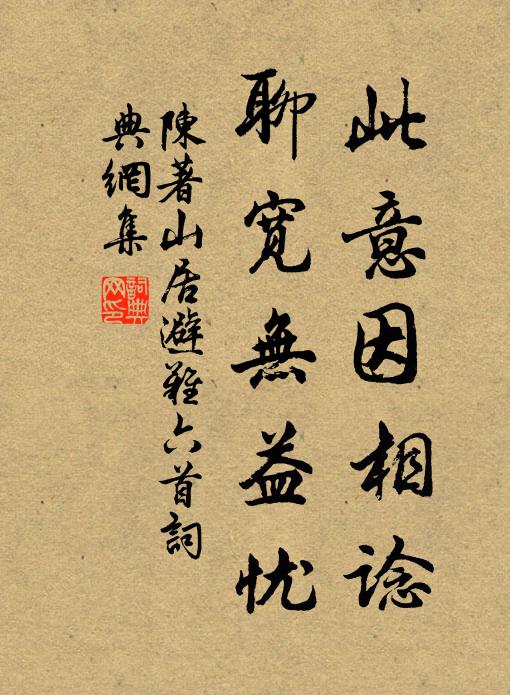 此意因相諗
聊寬無益忧
陳著山居避難六首詞
典網集
詞典
网印